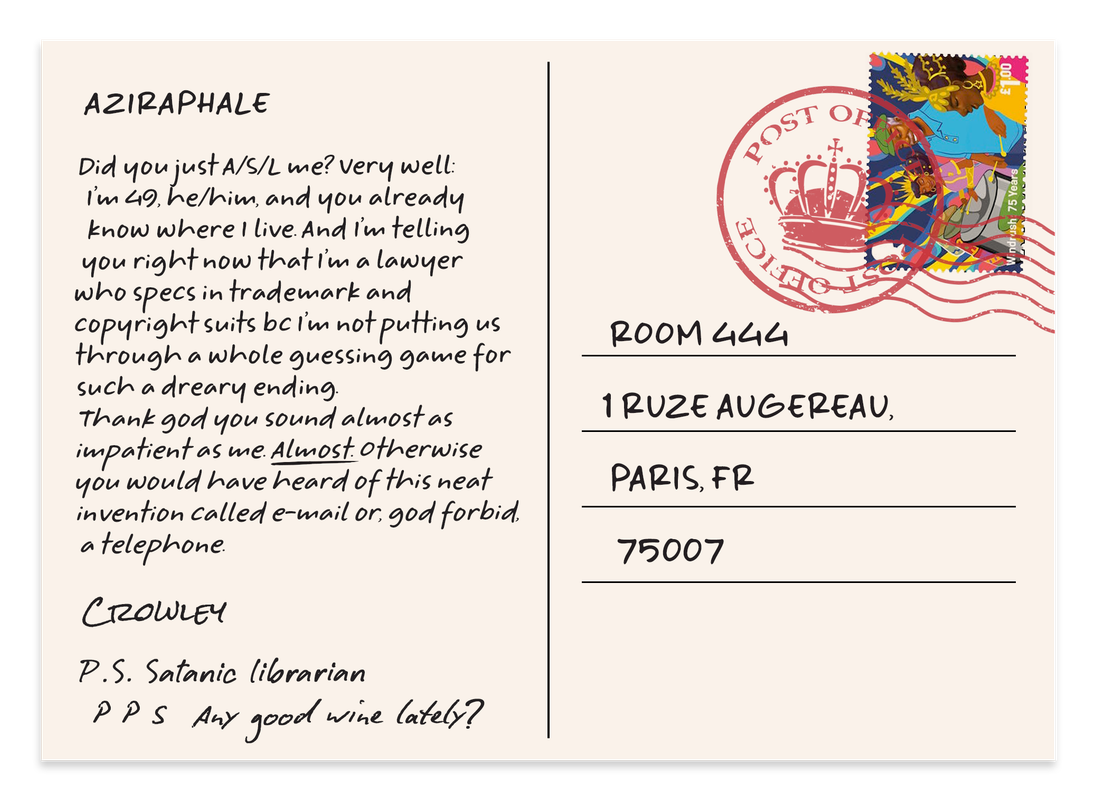 AZIRAPHALE
Did you just A/S/L me? Very well:
I'm 49, he/him, and you already
know where I live. And I'm telling
you right now that I'm a lawyer
who specs in trademark and
copyright suits bc I'm not putting us
through a whole guessing game for
such a dreary ending.
Thank god you sound almost as
impatient as me. Almost. Otherwise
you would have heard of this neat
invention called e-mail or, god forbid,
a telephone.
CROWLEY
P.S. Satanic librarian
P P S Any good wine lately?
£1.00
Windrush 75 Years
POST OFFICE
POST OFFICE
ROOM 444
1 RUZE AUGEREAU,
PARIS, FR
75007